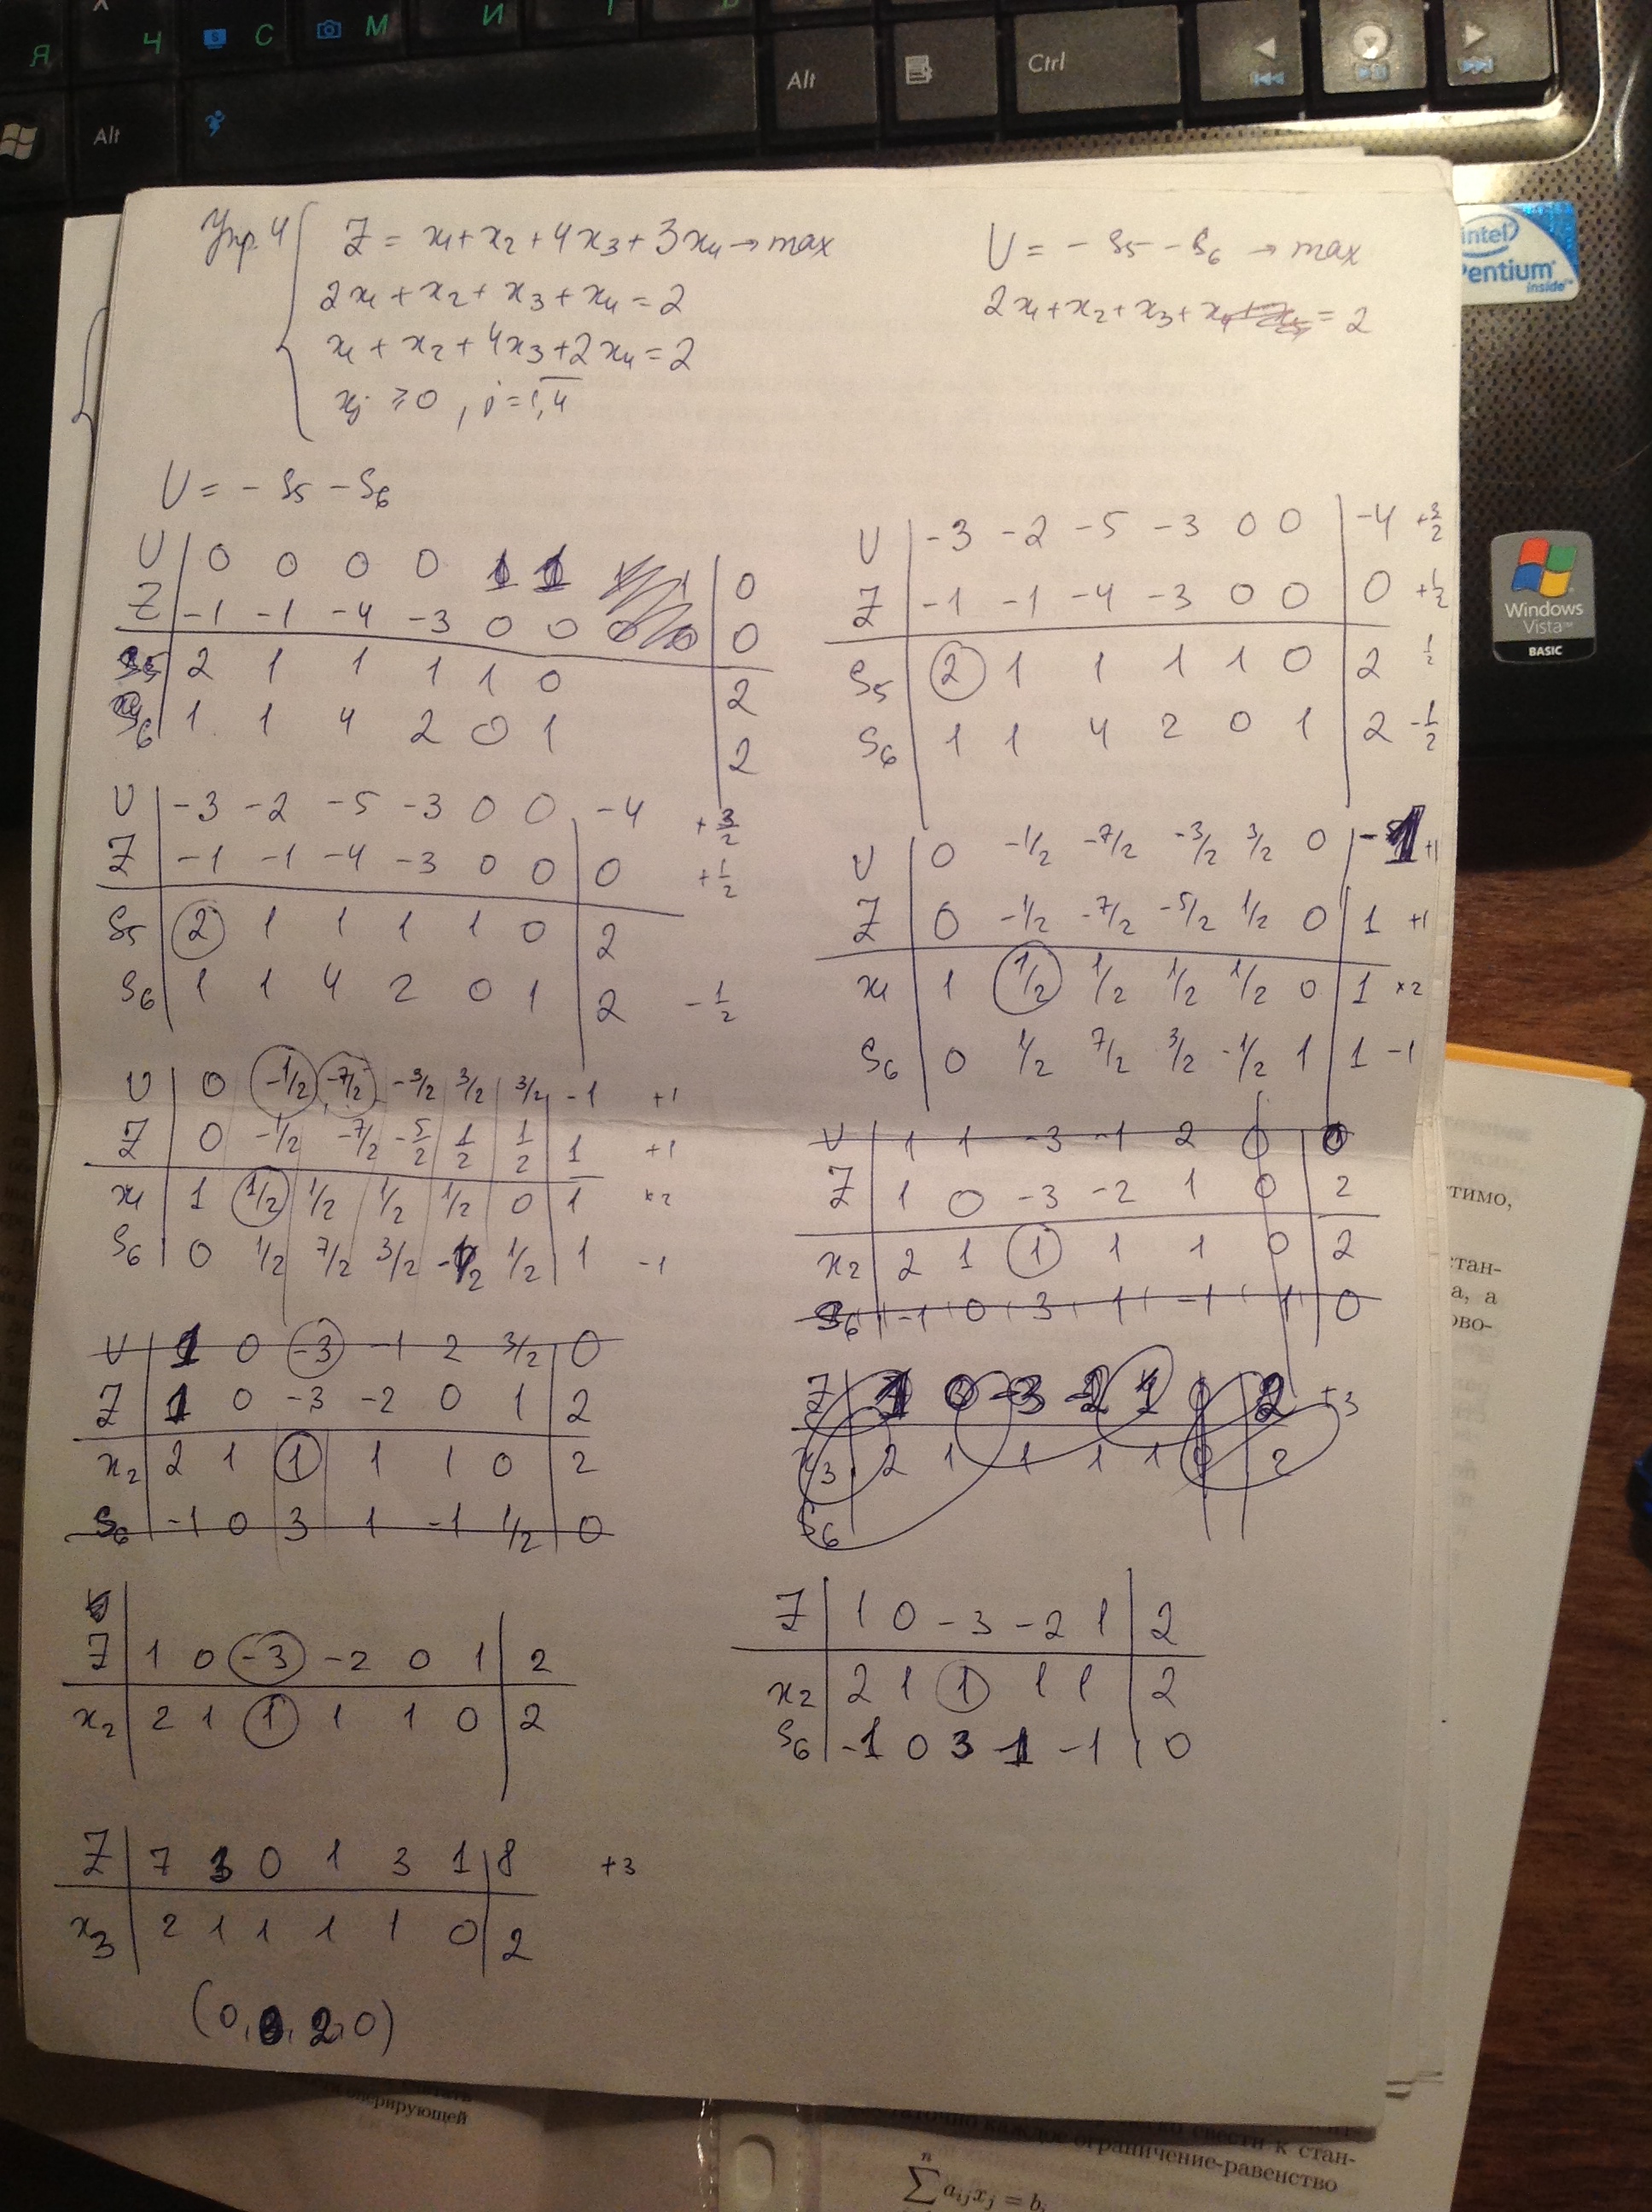 Я Ч С М И
Alt Ctrl
Alt
Упр. 4
Z = x₁ + x₂ + 4x₃ + 3x₄ → max
2x₁ + x₂ + x₃ + x₄ = 2
x₁ + x₂ + 4x₃ + 2x₄ = 2
xⱼ ≥ 0, j = 1,4
U = - S₅ - S₆ → max
2x₁ + x₂ + x₃ + x₄ = 2
intel
Pentium
inside
Windows Vista
BASIC
U = - S₅ - S₆
U | 0 0 0 0 1 1 | 0
Z | -1 -1 -4 -3 0 0 | 0
S₅ | 2 1 1 1 1 0 | 2
S₆ | 1 1 4 2 0 1 | 2
U | -3 -2 -5 -3 0 0 | -4 +3/2
Z | -1 -1 -4 -3 0 0 | 0 +1/2
S₅ | 2 1 1 1 1 0 | 2
S₆ | 1 1 4 2 0 1 | 2 -1/2
U | 0 -1/2 -7/2 -3/2 3/2 3/2 | -1 +1
Z | 0 -1/2 -7/2 -5/2 1/2 1/2 | 1 +1
x₁ | 1 1/2 1/2 1/2 1/2 0 | 1 ×2
S₆ | 0 1/2 7/2 3/2 -1/2 1/2 | 1 -1
U | 1 0 -3 -1 2 3/2 | 0
Z | 1 0 -3 -2 0 1 | 2
x₂ | 2 1 1 1 1 0 | 2
S₆ | -1 0 3 1 -1 1/2 | 0
Z | 1 0 -3 -2 0 1 | 2
x₂ | 2 1 1 1 1 0 | 2
Z | 7 3 0 1 3 1 | 8 +3
x₃ | 2 1 1 1 1 0 | 2
(0, 0, 2, 0)
U | -3 -2 -5 -3 0 0 | -4 +3/2
Z | -1 -1 -4 -3 0 0 | 0 +1/2
S₅ | 2 1 1 1 1 0 | 2 1/2
S₆ | 1 1 4 2 0 1 | 2 -1/2
U | 0 -1/2 -7/2 -3/2 3/2 0 | -1 +1
Z | 0 -1/2 -7/2 -5/2 1/2 0 | 1 +1
x₁ | 1 1/2 1/2 1/2 1/2 0 | 1 ×2
S₆ | 0 1/2 7/2 3/2 -1/2 1 | 1 -1
U | 1 1 -3 -1 2 0 | 0
Z | 1 0 -3 -2 1 0 | 2
x₂ | 2 1 1 1 1 0 | 2
S₆ | -1 0 3 1 -1 1 | 0
Z | 1 0 -3 -2 1 | 2 +3
x₃ | 2 1 1 1 1 0 | 2
S₆
Z | 1 0 -3 -2 1 | 2
x₂ | 2 1 1 1 1 | 2
S₆ | -1 0 3 1 -1 | 0
тимо,
стан-
а, а
ово-
оперирующей
свести к стан-
каждое ограничение-равенство
∑ⁿ aᵢⱼxⱼ = bᵢ